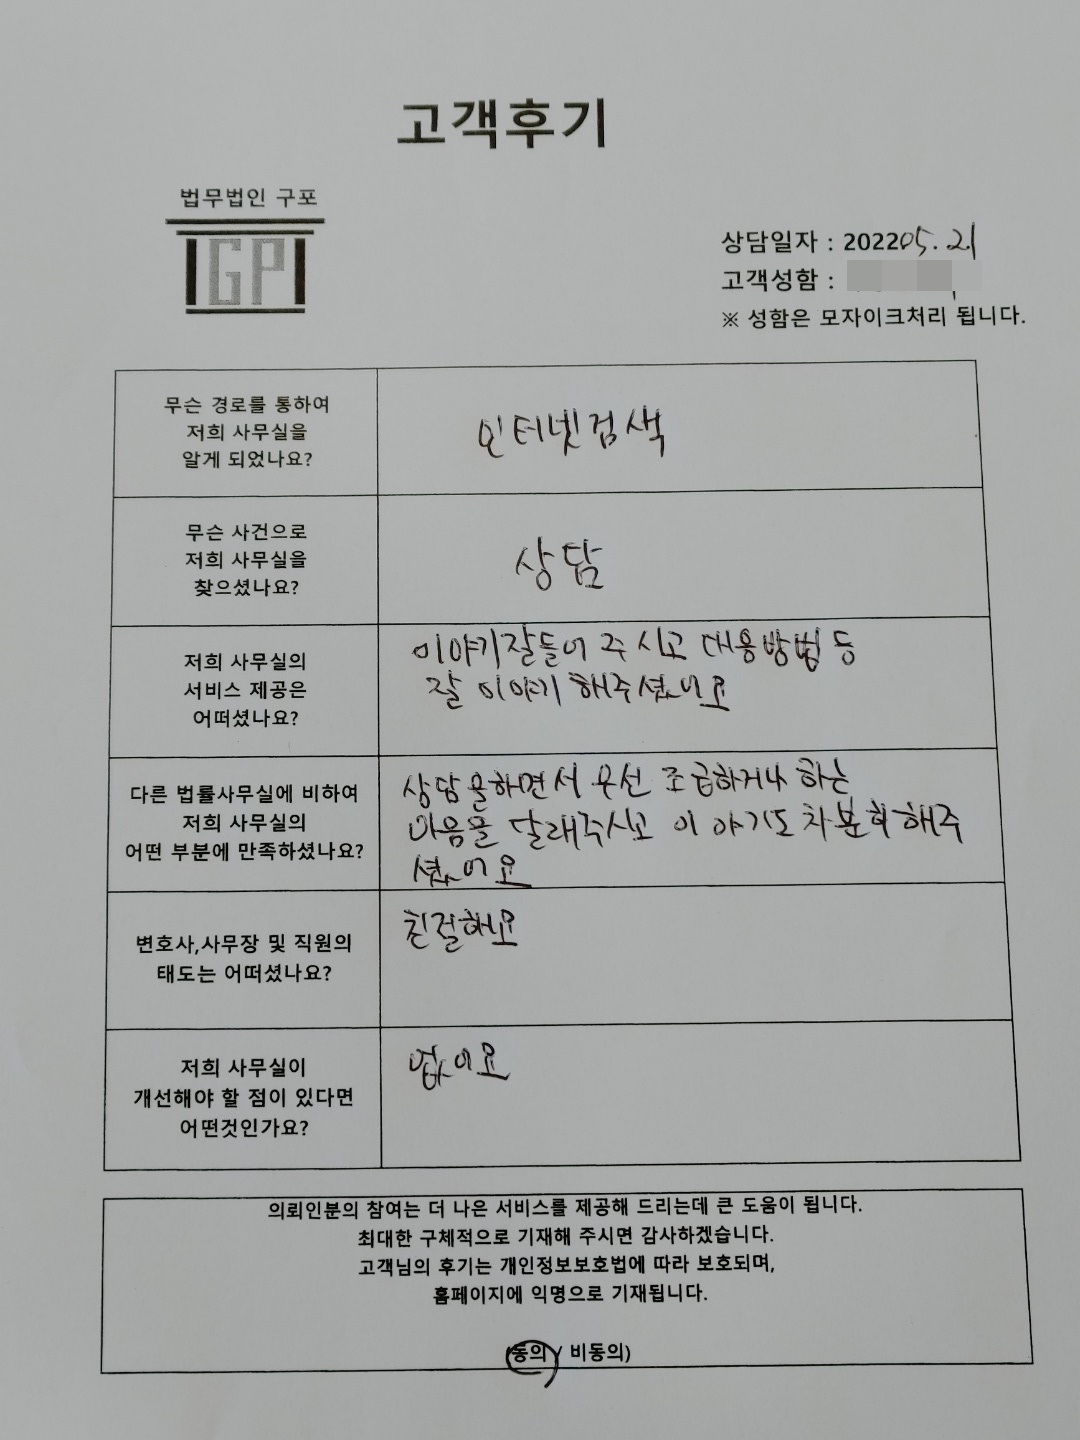 고객후기
법무법인 구포
IGPI
상담일자 : 202205.21
고객성함 :
※ 성함은 모자이크처리 됩니다.
무슨 경로를 통하여
저희 사무실을
알게 되었나요?
인터넷검색
무슨 사건으로
저희 사무실을
찾으셨나요?
상담
저희 사무실의
서비스 제공은
어떠셨나요?
이야기잘들어 주시고 대응방법등
잘 이야기 해주셨어요
다른 법률사무실에 비하여
저희 사무실의
어떤 부분에 만족하셨나요?
상담을하면서 우선 조급하거나 하는
마음을 달래주시고 이야기도차분히해주
셨어요
변호사,사무장 및 직원의
태도는 어떠셨나요?
친절해요
저희 사무실이
개선해야 할 점이 있다면
어떤것인가요?
없어요
의뢰인분의 참여는 더 나은 서비스를 제공해 드리는데 큰 도움이 됩니다.
최대한 구체적으로 기재해 주시면 감사하겠습니다.
고객님의 후기는 개인정보보호법에 따라 보호되며,
홈페이지에 익명으로 기재됩니다.
(동의 / 비동의)